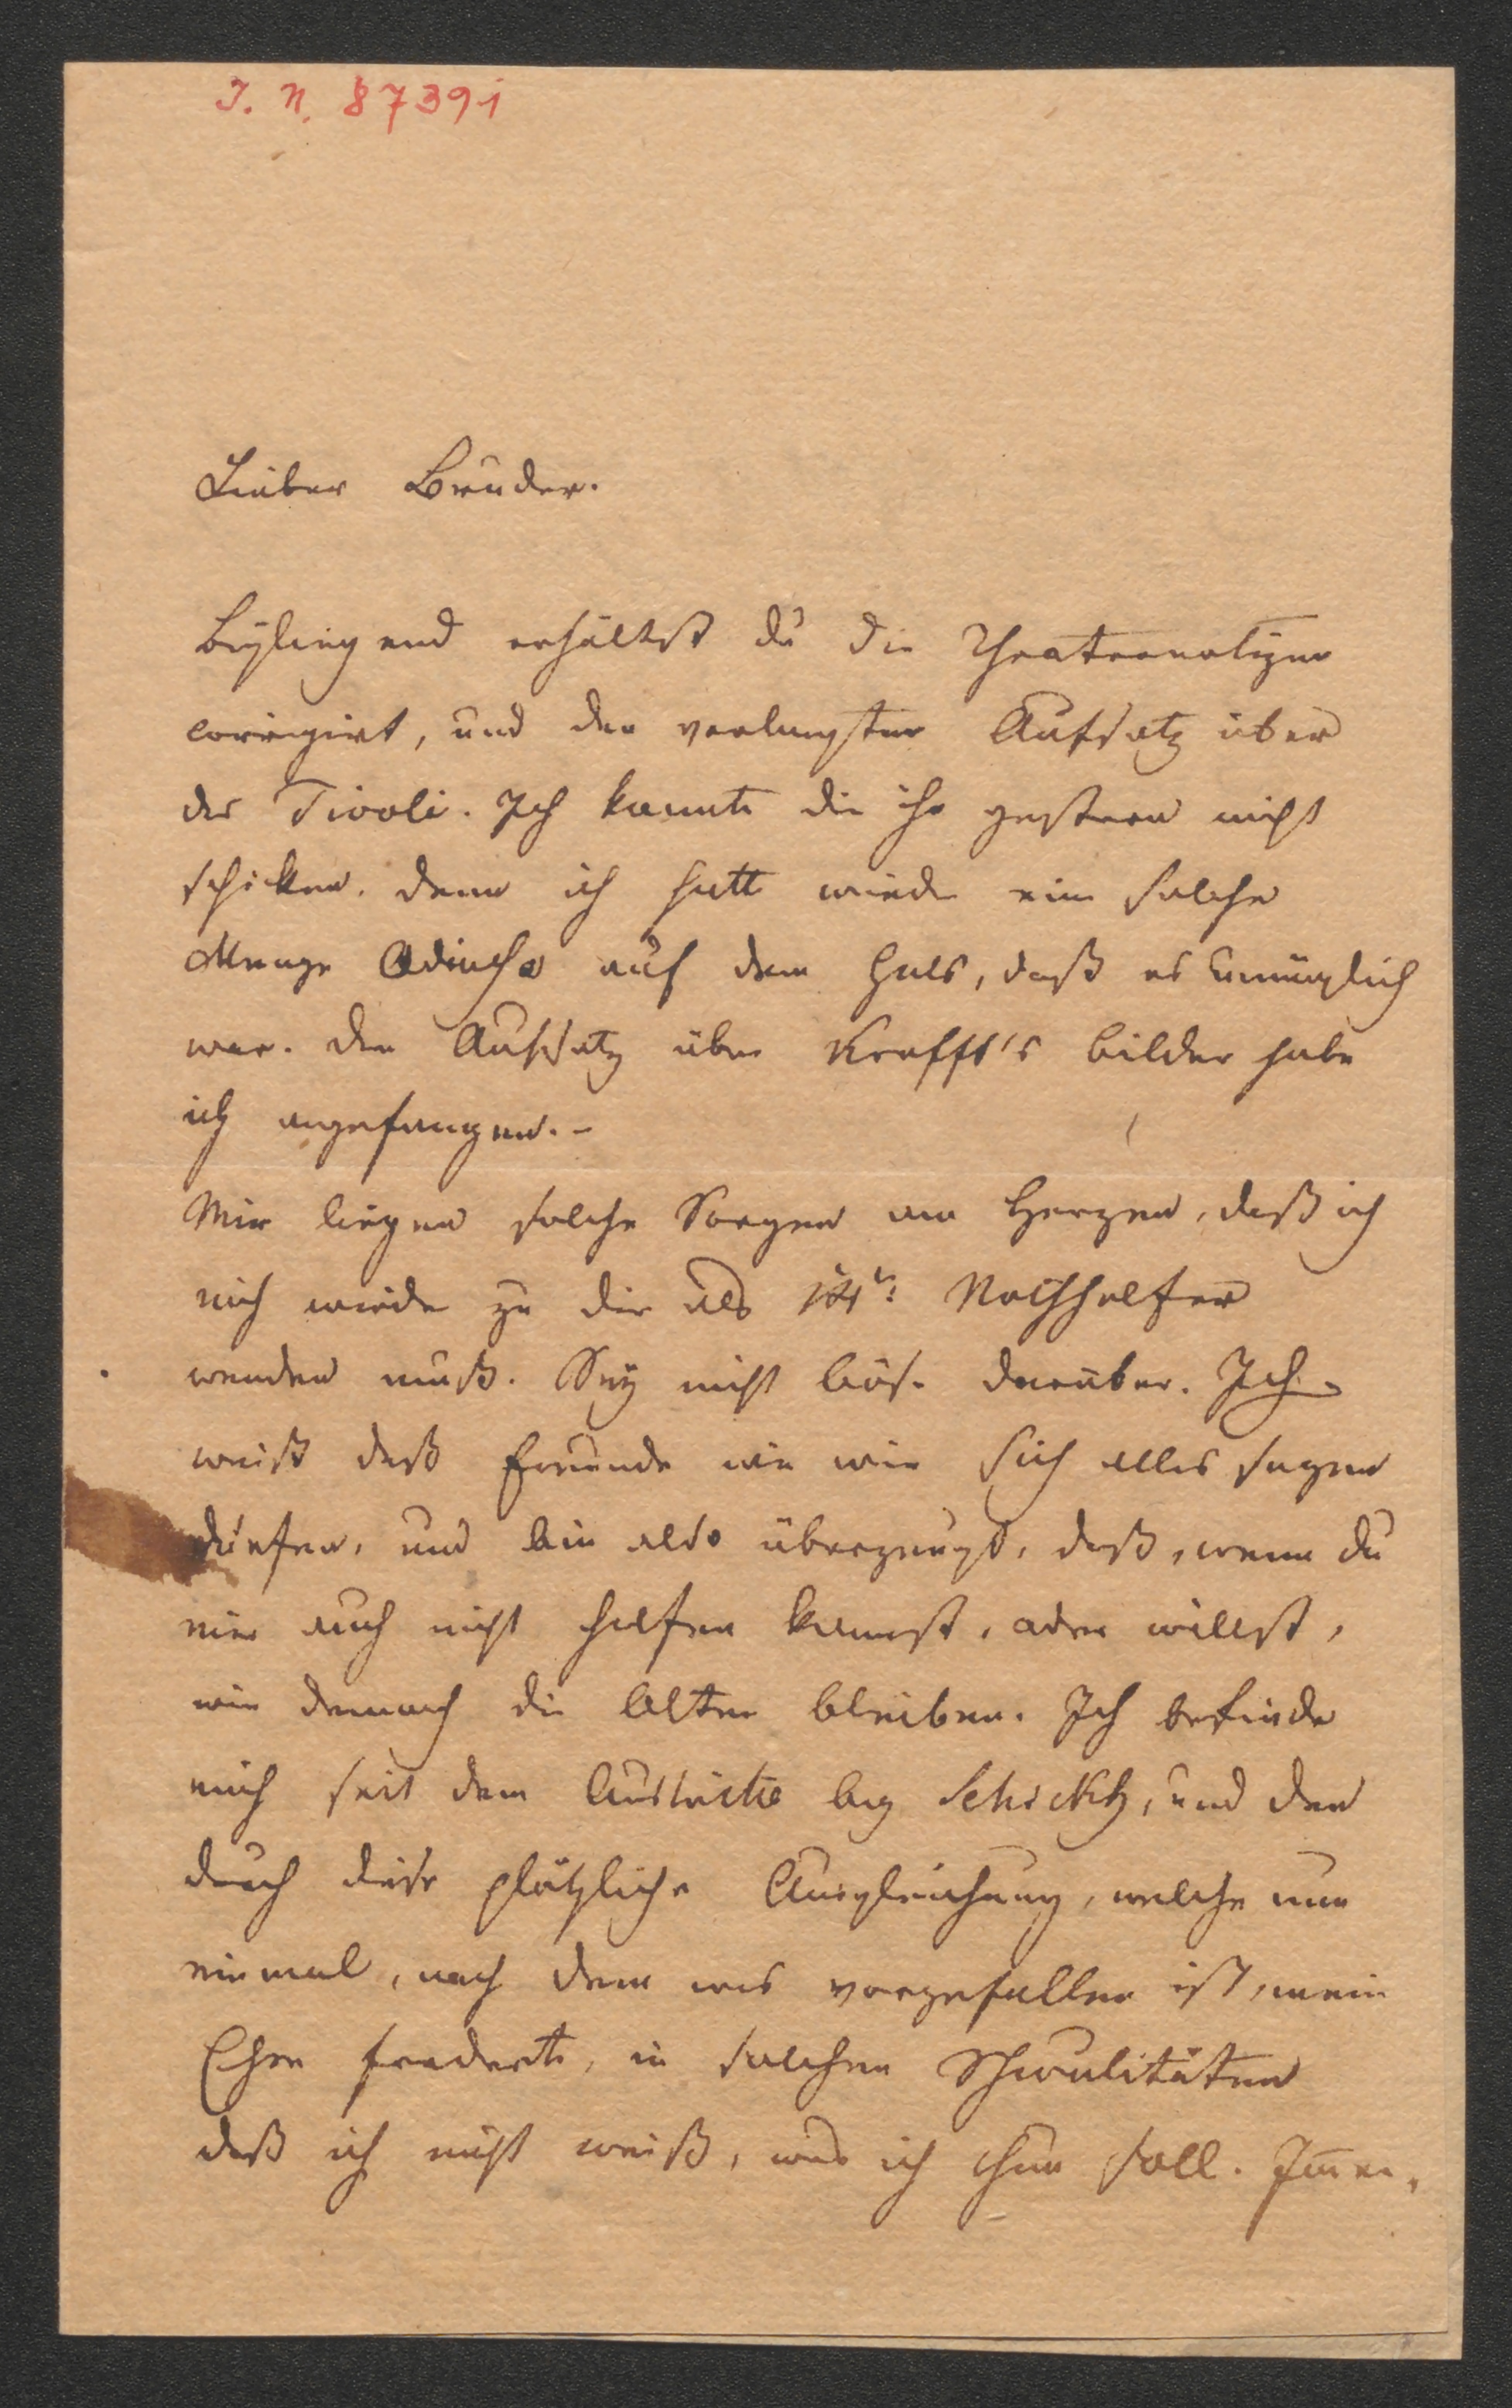 I. N. 87391
Lieber Bruder.
Beyliegend erhältst du die Theaternotizen
corrigirt, und den verlangten Aufsatz über
das Tivoli. Ich konnte dir ihn gestern nicht
schicken. denn ich hatte wieder eine solche
Menge auf dem Hals, daß es unmöglich
war. den Aufsatz über Krafft's Bilder habe
ich angefangen. –
Mir liegen solche Sorgen am Herzen, daß ich
mich wieder zu dir als Nothhelfer
wenden muß. Sey nicht böse darüber. Ich
weiß daß Freunde wie wir sich alles sagen
dürfen, und bin also überzeugt, daß, wenn du
mir auch nicht helfen kannst, oder willst,
wir dennoch die Alten bleiben. Ich befinde
mich seit dem Austritte bey Schickh, und den
durch diese plötzliche Ausgleichung, welche nun
einmal, nach dem was vorgefallen ist, meine
Ehre foderte, in solchen Schwulitäten
daß ich nicht weiß, was ich thun soll. Im̅er,